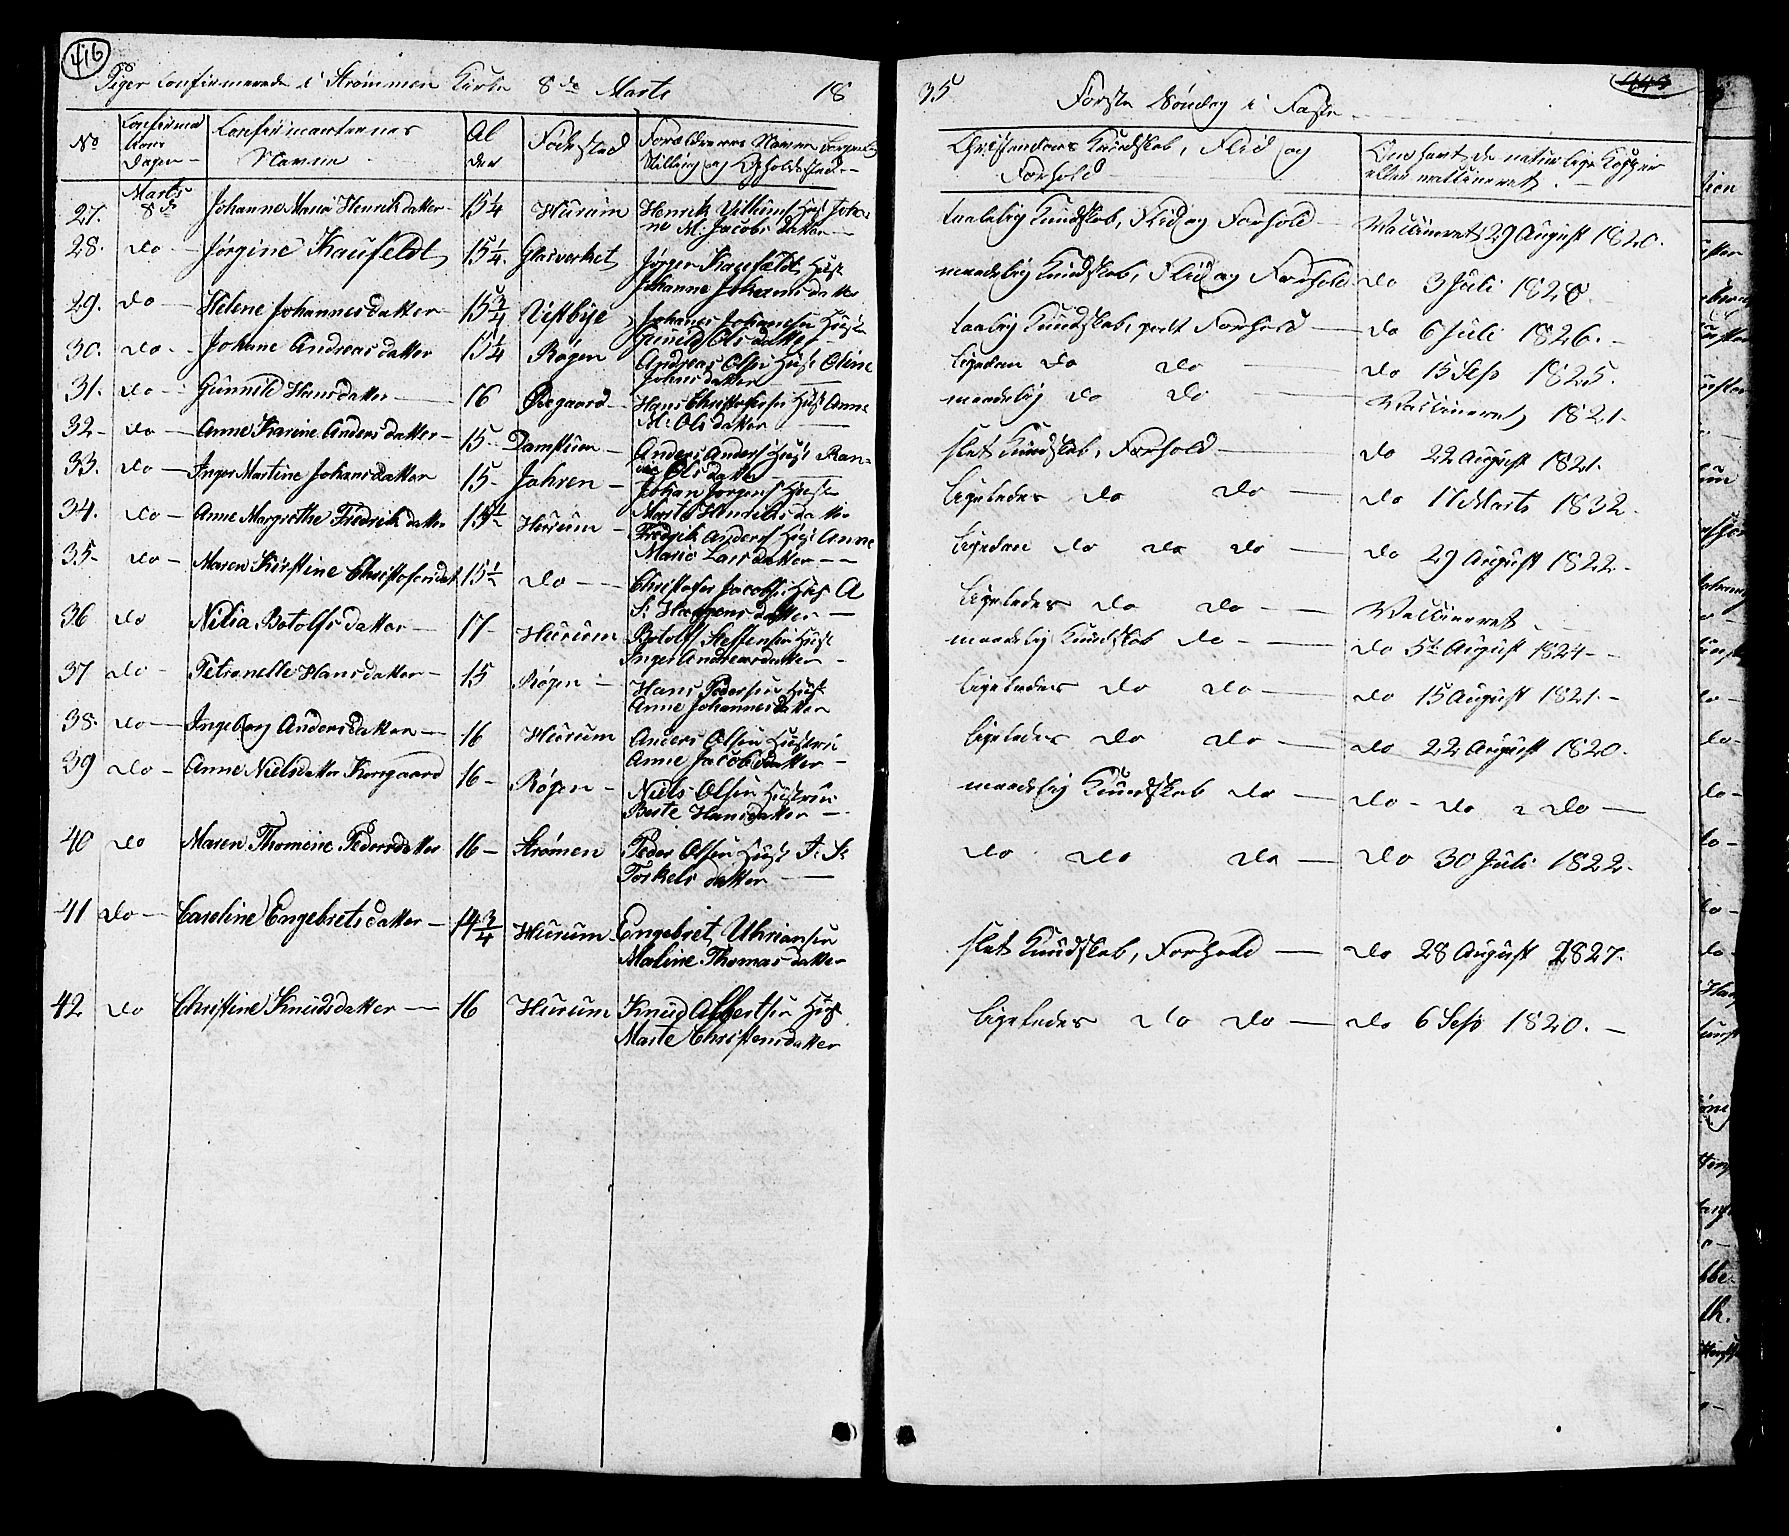 416
Piger confirmerede i Strømmen Kirke 8de Marts 18
35 Første Søndag i Faste
No Confirmations Dagen Confirmanternes Navne Alder Fødested Forældrenes Navne Borgerlig Stilling og Opholdssted
Christendoms Kundskab, Flid og Forhold
Om havt de naturlige Kopper eller vaccineret
27. Marts 8de Johanne Marie Henriksdatter 15 1/4 Hurum Henrik Hust Johanne M. Jacobsdatter taalelig Kundskab, Flid og Forhold Vaccineret 29 August 1820.
28. do Jørgine Kaufeldt 15 1/4. Glasverket Jørgen Kaufeldt Hust Johanne Johannisdatter maadelig Kundskab, Flid og Forhold do 3 Juli 1820.
29. do Helene Johannesdatter 15 3/4 Johanes Johannesen Hustru Gunild Olsdatter Kundskab, godt Forhold do 6 Juli 1826.
30. do Johane Andreasdatter 15 1/4 Røgen Andreas Olsen Hust Oline Johnsdatter ligedan do do do 15 Sep 1825.
31. do Gunnild Hansdatter 16 Hans Christophersen Hust Anne M. Olsdatter maadelig do do Vaccineret 1821.
32. do Anne Karine Andersdatter 15 Anders Anders Hust Olsdatter slet Kundskab, Forhold do 22 August 1821.
33. do Inger Martine Johansdatter 15 Jahren Johan Jørgens Hust Marte Henriksdatter ligeledes do do do 17 Marts 1832.
34. do Anne Margrethe Fredriksdatter 15 1/2 Hurum Fredrik Anders Hust Anne Marie Larsdatter ligedan do do do do 29 August 1822.
35. do Maren Kirstine Christofersdat 15 1/2 do Christofer Jacobs Hust A ligeledes do do Vaccineret
36 do Nilia Botolfsdatter 17 Hurum Botolf Steffensen Hust Inger Andreasdatter maadelig Kundskab do do 5te August 1824
37 do Petronelle Hansdatter 15 Røgen Hans Pedersen Hust Anne Johannesdatter ligeledes do do do 15 August 1821.
38. do Ingeborg Andersdatter 16 Hurum Anders Olsen Hustru Anne Jacobsdatter ligeledes do do do 22 August 1820.
39 do Anne Nielsdatter Korsgaard 16 Røgen Niels Olsen Hustru Berte Hansdatter maadelig Kundskab do do do do
40 do Maren Thomine Pedersdatter 16 Strømen Peder Olsen Hust Torkelsdatter do do do do 30 Juli 1822.
41 do Caroline Engebretsdatter 14 3/4 Hurum Engebret Uhriansen Maline Thomasdatter slet Kundskab, Forhold do 28 August 1827.
42 do Christine Knudsdatter 16 Hurum Knud Albertsen Hust Marte Christensdatter ligeledes do do do 6 Sep 1820.